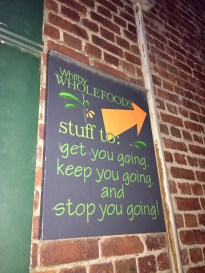 Whitby
WHOLEFOODS
stuff to:
get you going,
keep you going,
and
stop you going!